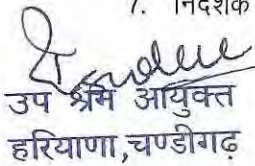 7. निदेशक
उप श्रम आयुक्त
हरियाणा,चण्डीगढ़